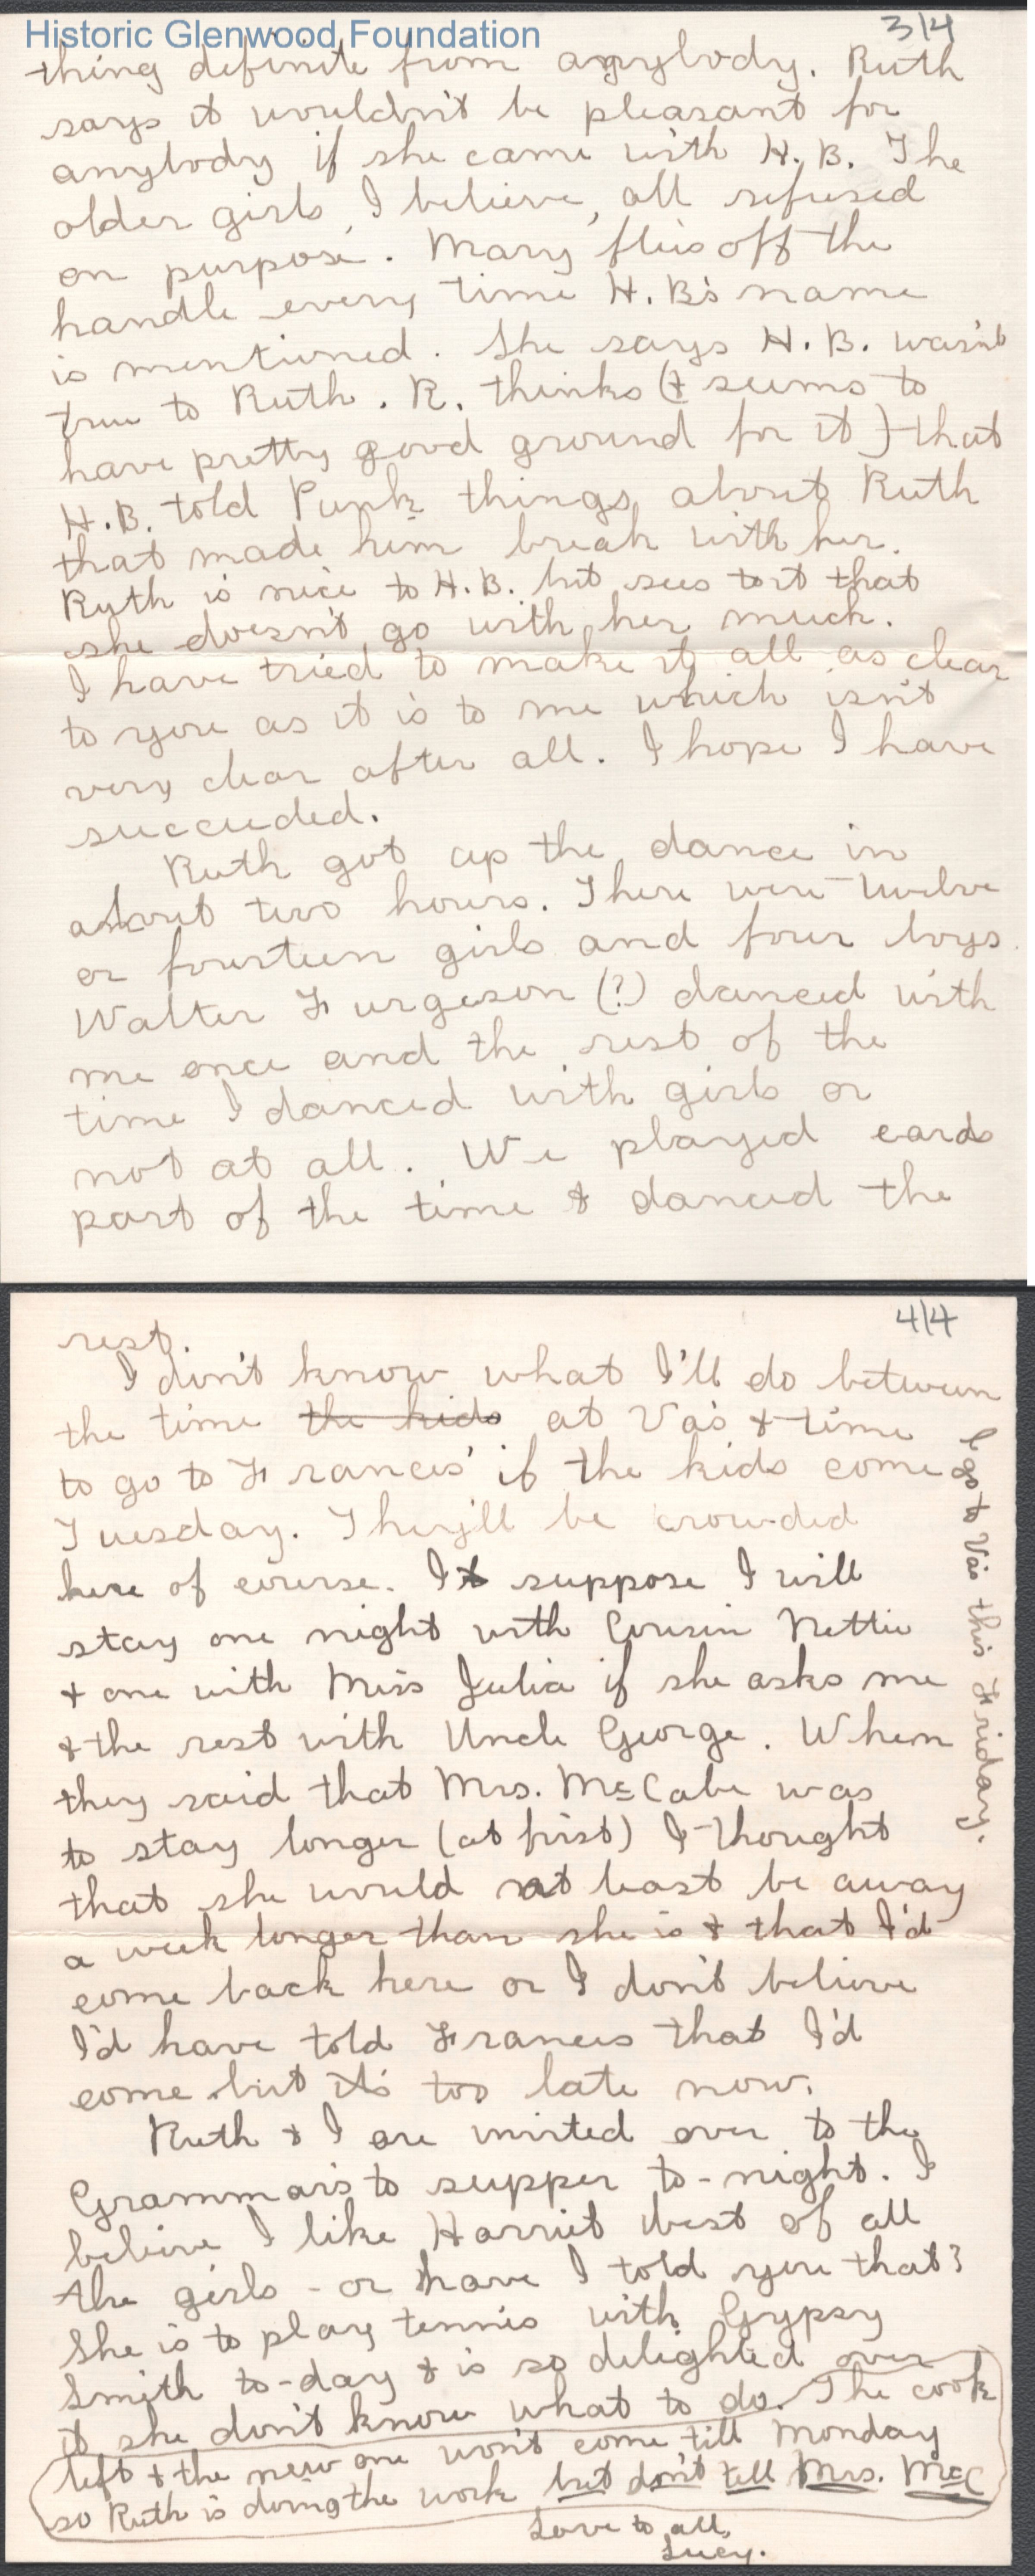 Historic Glenwood Foundation
3/4
thing definite from anybody. Ruth
says it wouldn't be pleasant for
anybody if she came with H. B. The
older girls, I believe, all refused
on purpose. Mary flies off the
handle every time H. B's name
is mentioned. She says H. B. wasn't
true to Ruth. R. thinks (& seems to
have pretty good ground for it) that
H.B. told Punk things about Ruth
that made him break with her.
Ruth is nice to H.B. but sees to it that
she doesn't go with her much.
I have tried to make it all as clear
to you as it is to me which isn't
very clear after all. I hope I have
succeeded.
Ruth got up the dance in
about two hours. There were twelve
or fourteen girls and four boys.
Walter Furgeson (?) danced with
me once and the rest of the
time I danced with girls or
not at all. We played cards
part of the time & danced the
4/4
rest.
I don't know what I'll do between
the time the kids at Va's & time
to go to Frances' if the kids come
Tuesday. They'll be crowded
here of course. I suppose I will
stay one night with Cousin Nettie
& one with Miss Julia if she asks me
& the rest with Uncle George. When
they said that Mrs. McCabe was
to stay longer (at first) I thought
that she would at least be away
a week longer than she is & that I'd
come back here or I don't believe
I'd have told Frances that I'd
come but it's too late now.
Ruth & I are invited over to the
Grammar's to supper to-night. I
believe I like Harriet best of all
the girls - or have I told you that?
She is to play tennis with Gypsy
Smith to-day & is so delighted over
it she don't know what to do. The cook
left & the new one won't come till Monday
so Ruth is doing the work but don't tell Mrs. McC
Love to all,
Lucy.
I go to Va's this Friday.